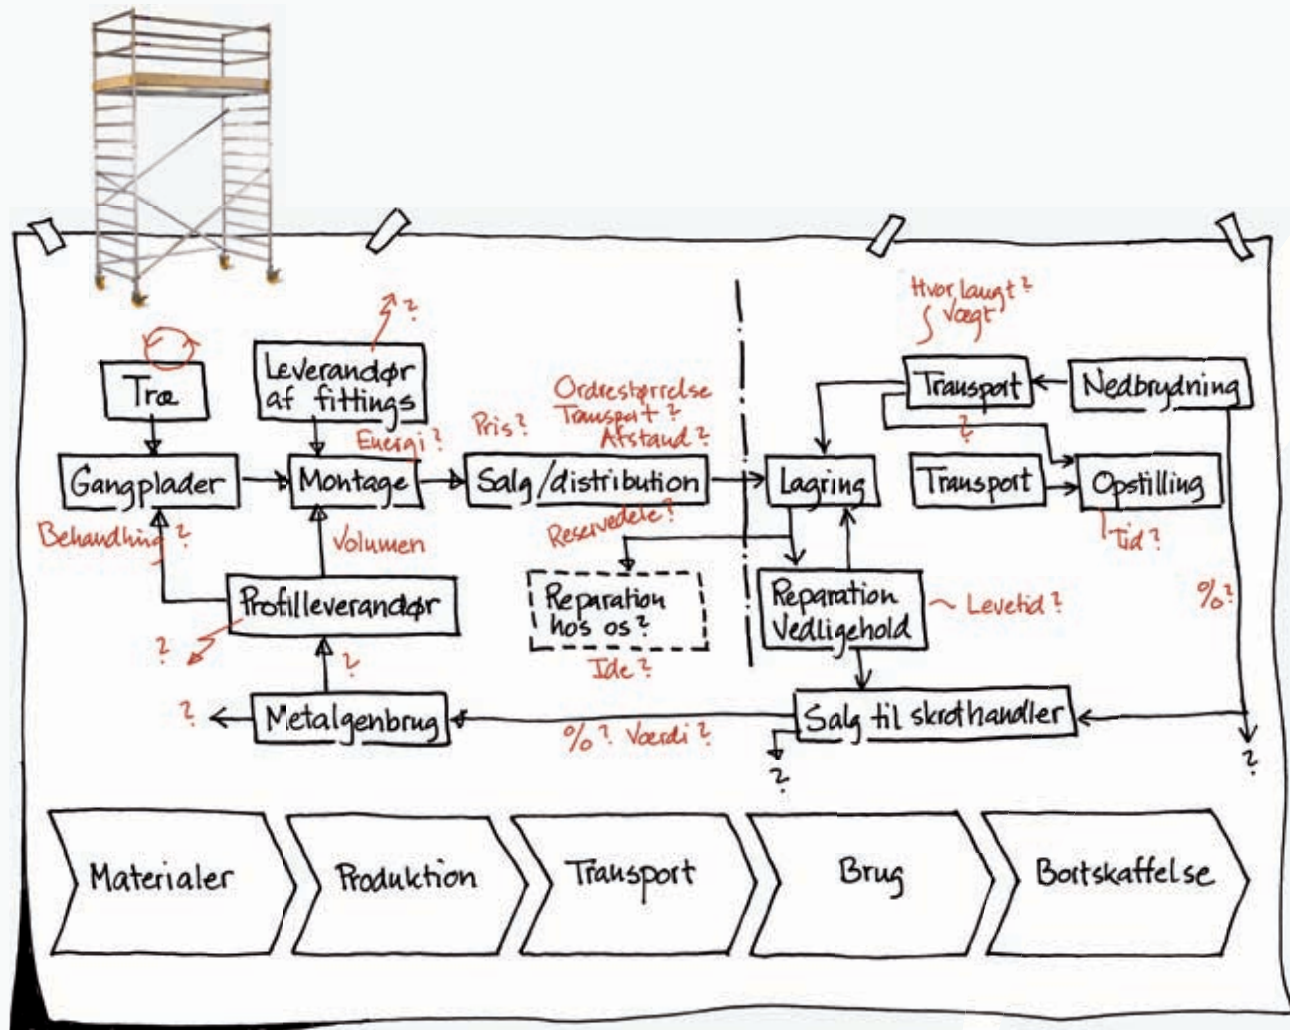 Hvor langt?
Vægt
?
Træ
Leverandør
af fittings
Transport
Nedbrydning
Ordrestørrelse
Transport?
Afstand?
Energi?
Pris?
?
Gangplader
Montage
Salg/distribution
Lagring
Transport
Opstilling
Behandling?
Volumen
Reservedele?
Tid?
Profilleverandør
Reparation
hos os?
Reparation
Vedligehold
Levetid?
%?
?
?
Ide?
?
Metalgenbrug
%? Værdi?
Salg til skrothandler
?
?
Materialer
Produktion
Transport
Brug
Bortskaffelse